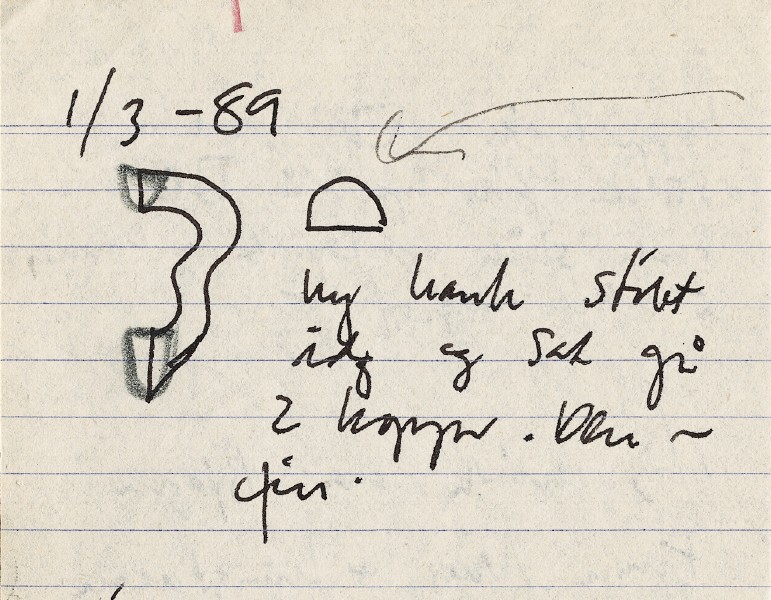 1/3 - 89
ny hank støbt
idg og sat på
2 kopper. Den ~
fin.